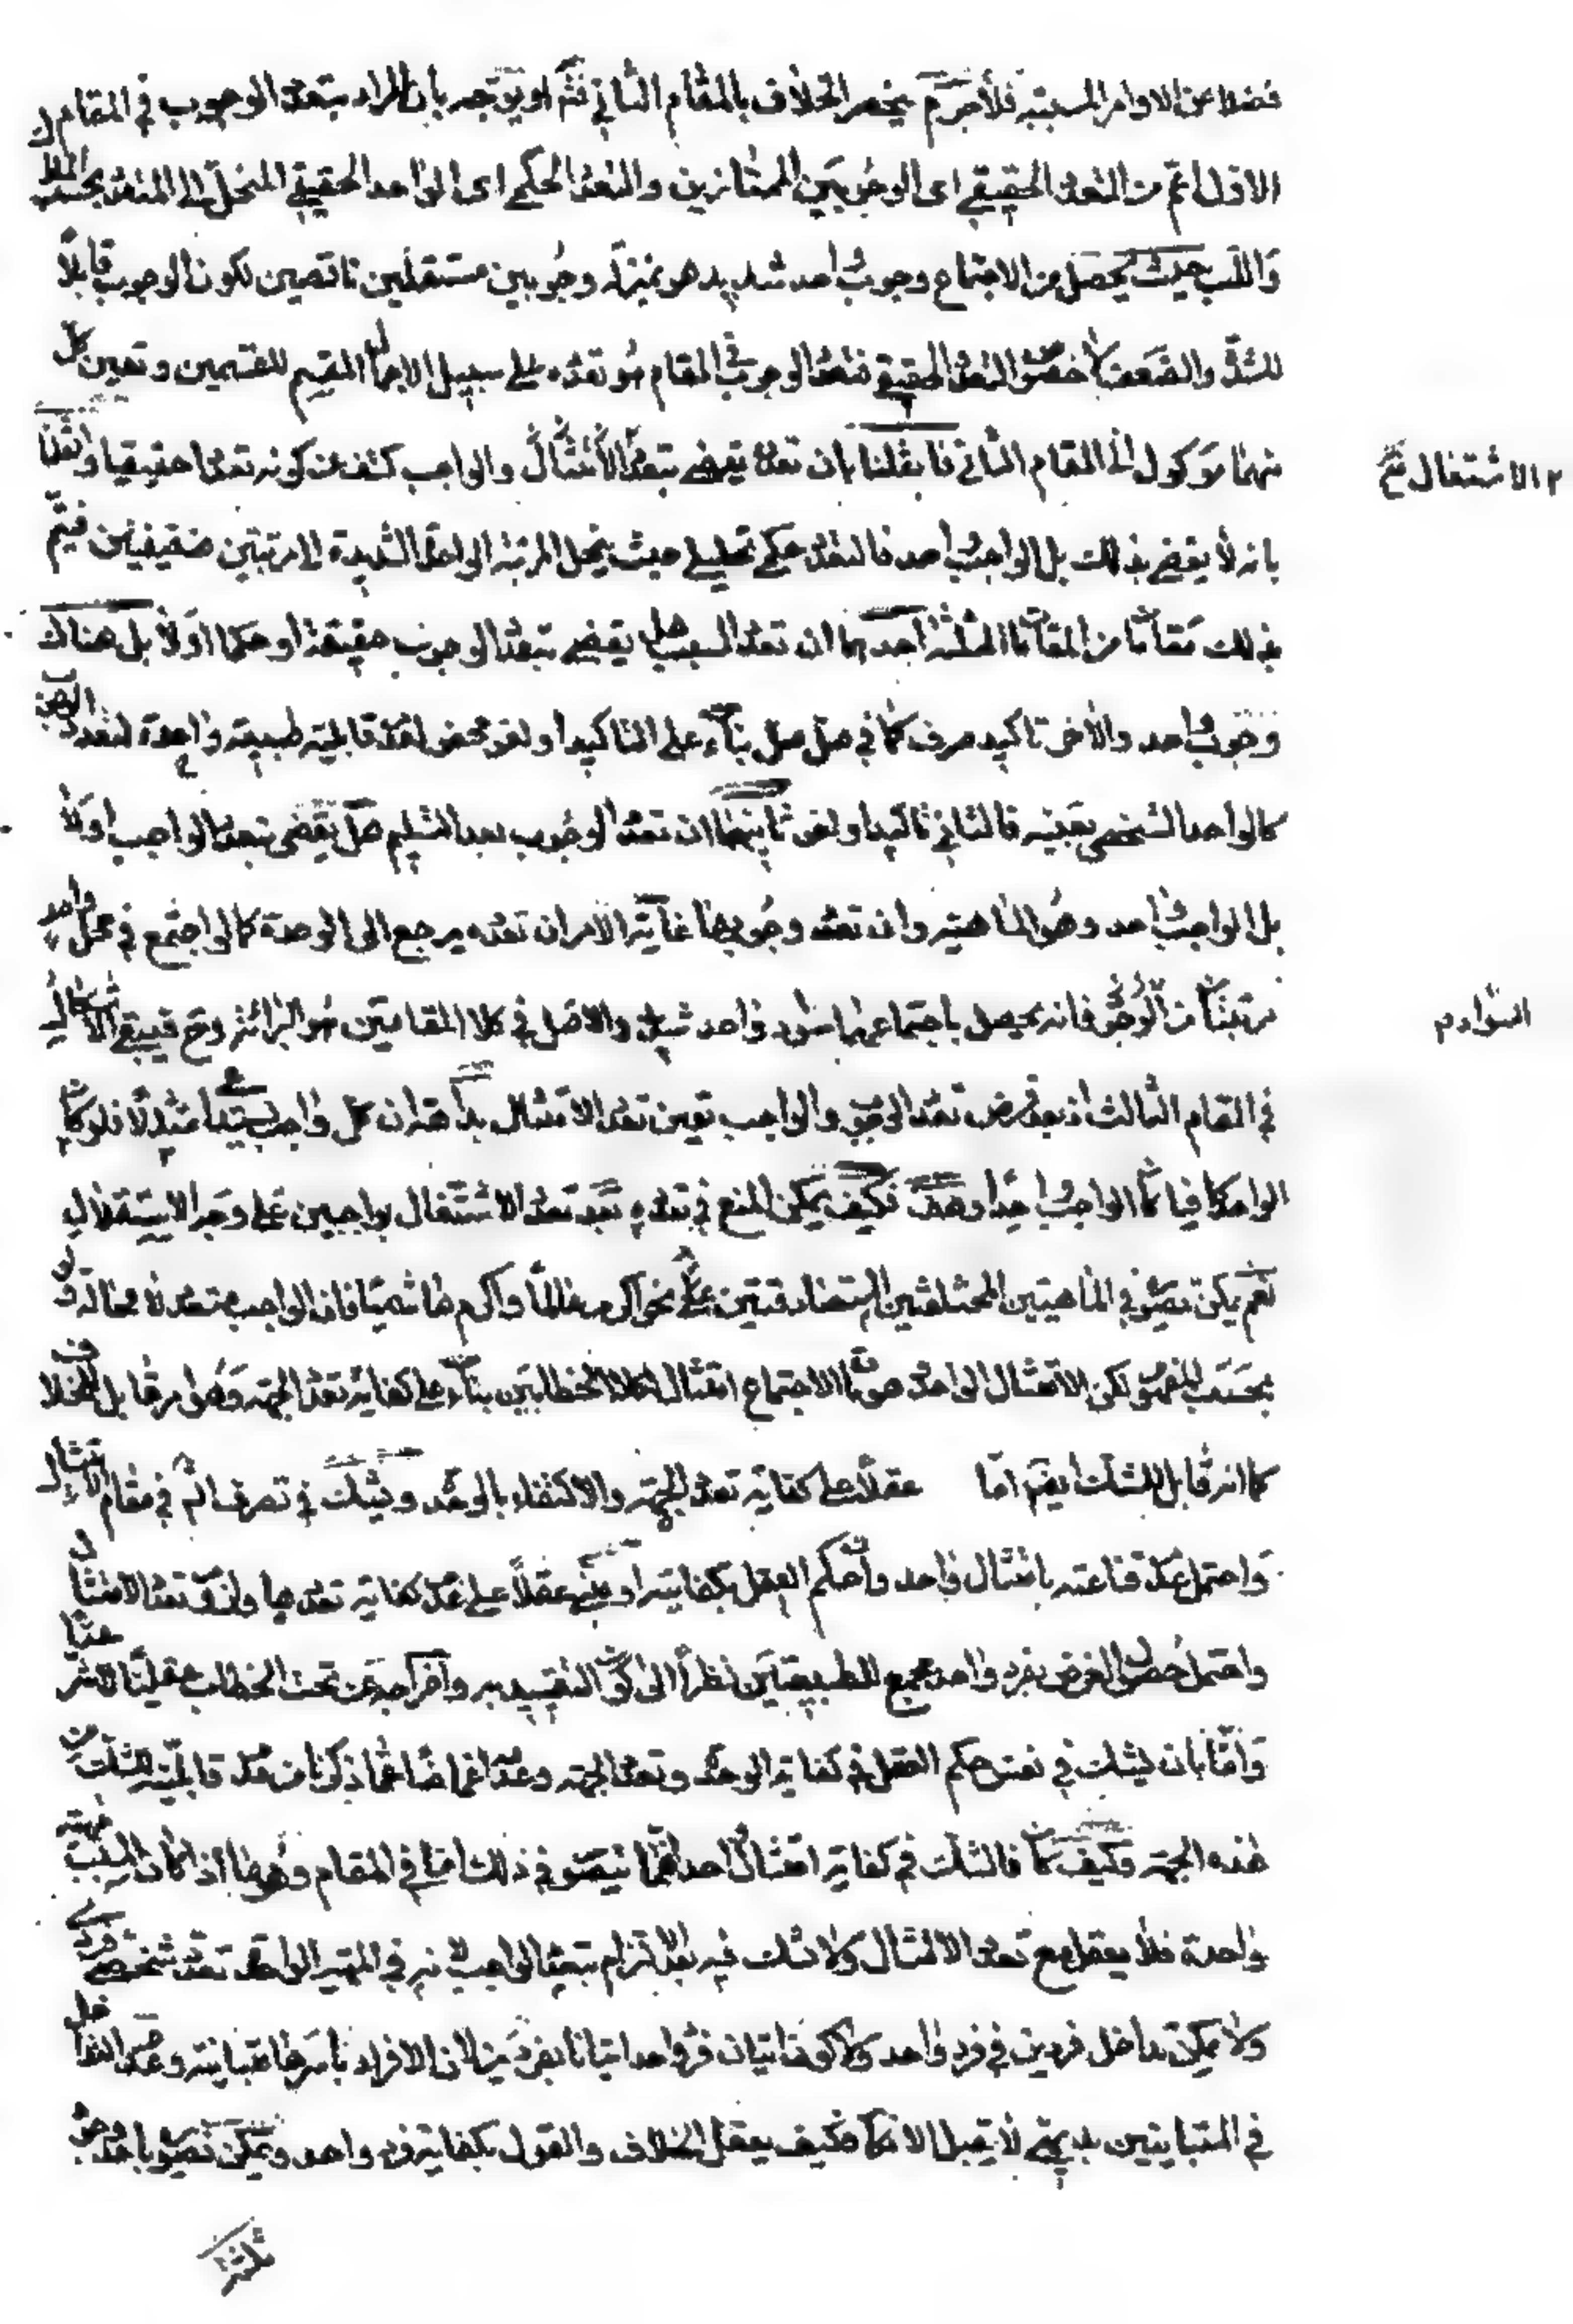 فضلا عن الاوامر المسببية فلا جرم ينحصر الخلاف بالمقام الثاني فتم او يوجه بان المراد بتعدد الوجوب في المقام
الاول اعم من التعدد الحقيقي اى الوجوبين الممتازين والتعدد الحكمى اى الواحد الحقيقي المنحل الى المتعدد بحسب
واللب حيث يحصل من الاجتماع وجوب واحد شديد هو بمنزلة وجوبين مستقلين ناقصين لكون الوجوب قابلا
للشدة والضعف لا خصوص التعدد الحقيقي فتعدد الوجوب في المقام هو تعدده على سبيل الابهام المقسم للقسمين وتعيين كل
منهما موكول الى المقام الثاني فان قلنا بان تعدده يقضى بتعدد الامتثال والواجب كشف عن كونه تعددا حقيقيا وان قلنا
٢ الاشتغال
بانه لا يقضى بذلك بل الواجب واحد فالتعدد حكمى تحليلى حيث ينحل المرتبة الواحدة الشديدة الى مرتبتين ضعيفتين فيتم
بذلك مقامنا من المقامات الثلثة احدها ان تعدد السبب هل يقضى بتعدد الوجوب حقيقة او حكما اولا بل هناك
وجوب واحد والاخر تاكيد صرف كما في صل صل بناء على التاكيد او لغو محض لعدم قابلية طبيعة واحدة لتعدد
كالواحد الشخصى بعينه فالثاني تاكيد او لغو ثانيهما ان تعدد الوجوب بعد التسليم هل يقضى بتعدد الواجب اولا
بل الواجب واحد وهو الماهية وان تعدد وجوبها غاية الامر ان تعدده يرجع الى الوحدة كما لو اجتمع في محل واحد
مرتبتان من الوجوب فانه يحصل باجتماعهما سواد واحد شديد والاصل في كلا المقامين هو البرائة وح فيبقى الاشكال
السواد م
في المقام الثالث اذ بعد فرض تعدد الوجوب والواجب تعين تعدد الامتثال بداهة ان كل واجب يستدعى امتثالا فلو كان
الواحد كافيا كان الواجب واحدا وهف فكيف يمكن المنع في تعدده بعد تعدد الاشتغال بواجبين على وجه الاستقلال
نعم يمكن تصويره في الماهيتين المختلفتين المتصادقتين على نحو اكرم عالما واكرم هاشميا فان الواجب متعدد لا محالة
بحسب المفهوم لكن الامتثال الواحد حين الاجتماع امتثال لكلا الخطابين بناء على كفاية تعدد الجهة وهو امر قابل للخلاف
كما انه قابل للشك ايضم اما عقلا على كفاية تعدد الجهة والاكتفاء بالوحدة ويشك في تصرف الشم في مقام الامتثال
واحتمل عدم قناعته بامتثال واحد وان حكم العقل بكفايته او يبنى عقلا على عدم كفاية تعددها ولزوم تعدد الامتثال
واحتمل حصول الغرض بفرد واحد مجمع للطبيعتين نظرا الى كون التقييد به واخراجه عن تحت الخطاب عقليا
واما بان يشك في نفس حكم العقل في كفاية الوحدة وتعدد الجهة وعدمه اغماضا عما ذكرنا من عدم قابلية للشك
هذه الجهة وكيف كان فالشك في كفاية امتثال احدهما يتصور في ذلك اما في المقام وهو ما اذا كان السبب
واحدة فلا يعقل مع تعدد الامتثال ولا شك فيه بعد التزام تعدد الواجب فيه في المهية الواحدة تعدد شخصى فردى
ولا يمكن تداخل فردين في فرد واحد ولا كون اتيان فرد واحد اتيانا بفردين لان الافراد باسرها متباينة وعدم التداخل
في المتباينين بديهى لا يقبل الانكار فكيف يعقل الخلاف والقول بكفاية فرد واحد ويمكن تصويره باحد وجوه
ثلثة